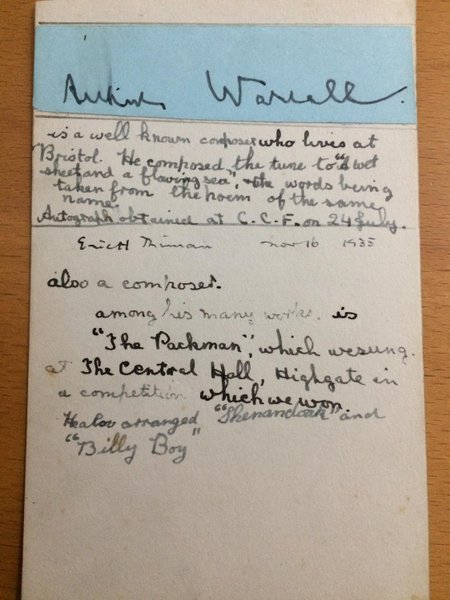 Arthur Warrell.
is a well known composer who lives at
Bristol. He composed the tune to "A wet
sheet and a flowing sea", the words being
taken from the poem of the same
name.
Autograph obtained at C.C.F. on 24 July.
Eric H Thiman Nov 16 1935
also a composer.
among his many works. is
"The Packman", which we sung.
at The Central Hall, Highgate in
a competition which we won.
He also arranged "Shenandoah" and
"Billy Boy"